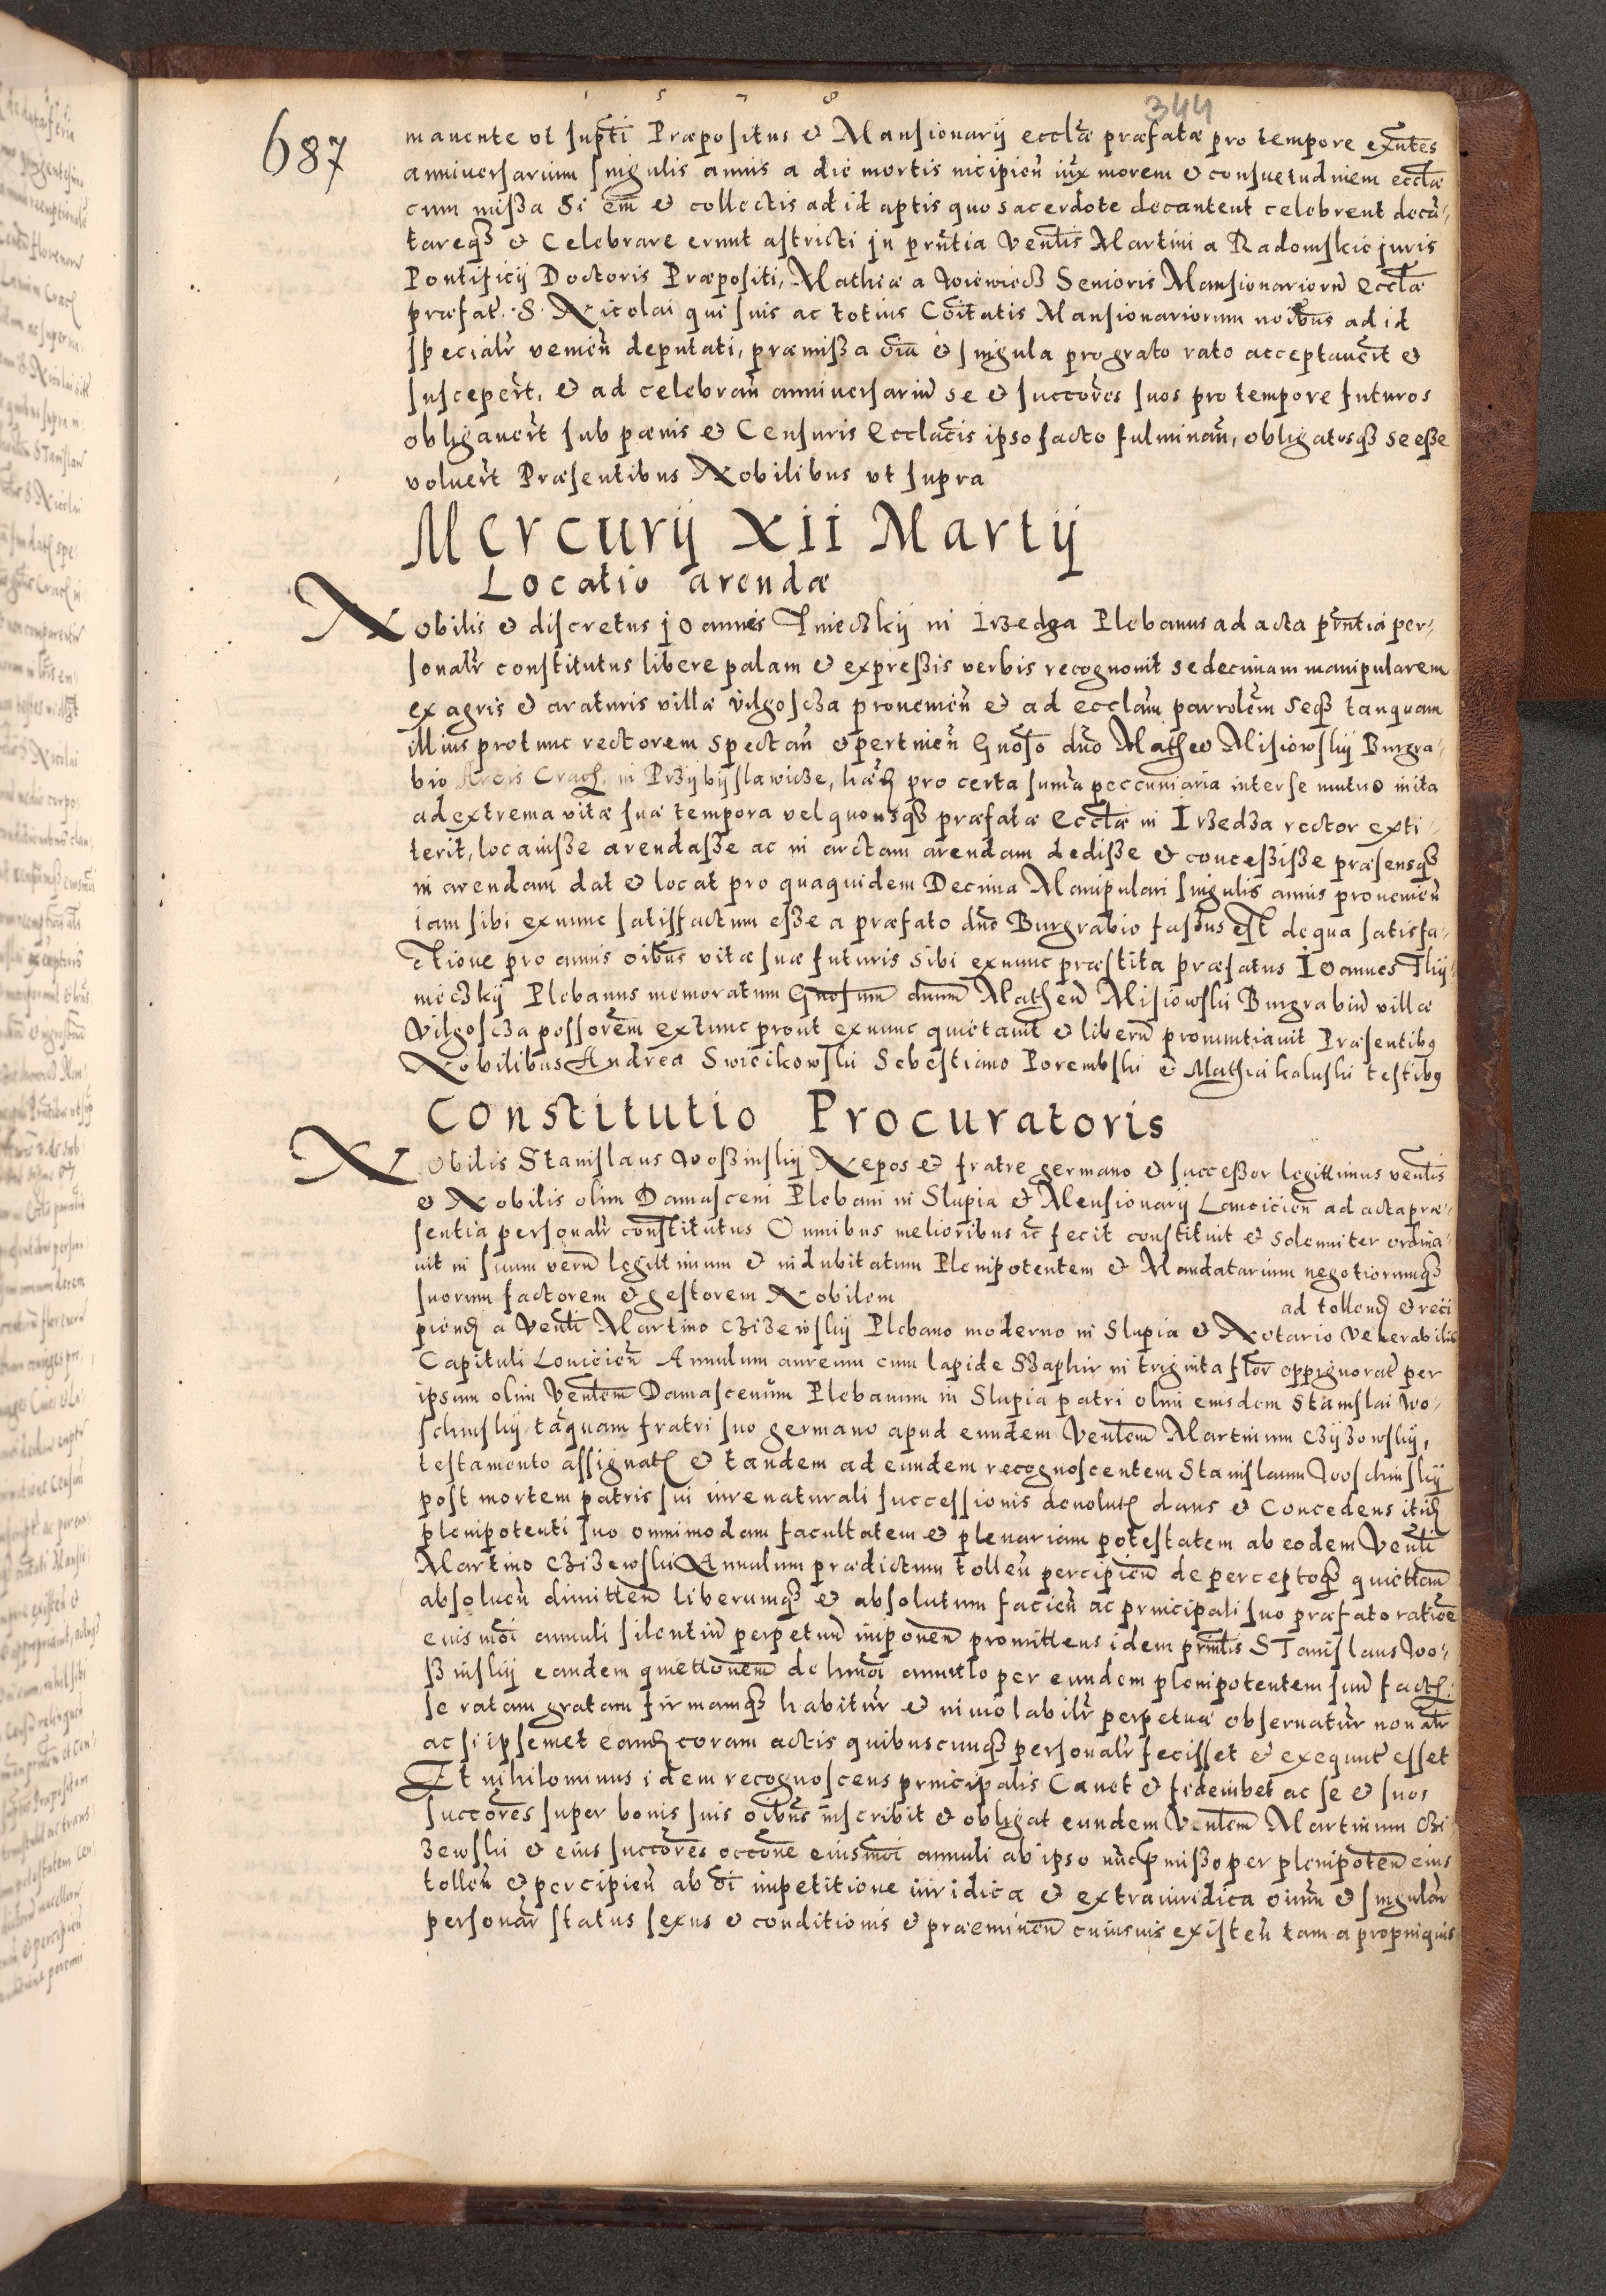 1 5 7 8
344
687
manente vt supt̃i Præpositus et Mansionarij eccl̃æ præfatæ pro tempore exñtes
anniuersarium singulis annis a die mortis incipieñ iux̃ morem et consuetudinem eccl̃æ
cum missa et collectis ad id aptis quo sacerdote decantent celebrent decã,,
tareqß et Celebrare erunt astricti jn pr̃ntia Ven̄lis Martini a Radomskie juris
Pontificij Doctoris Præpositi, Mathiæ a Senioris Mansionariorũ Eccl̃æ
præfat̃. S. Nicolai qui suis ac totius Cõitatis Mansionariorum noĩbus ad id
specialr̃ venieñ deputati, præmissa oĩa et singula pro grato rato acceptauer̃t et
susceper̃t, et ad celebrañ anniuersariũ se et succor̃es suos pro tempore futuros
obligauer̃t sub pænis et Censuris Eccl̃acis ipso facto fulminañ, obligatosqß se esse
voluer̃t Præsentibus Nobilibus vt supra
Mercurij XII Martij
Locatio arendæ
Nobilis et discretus joannes Tnieczkij in Irzedza Plebanus ad acta pr̃ntia per,,
sonalr̃ constitutus libere palam et expressis verbis recognouit se decimam manipularem
ex agris et araturis villæ vilgoscza prouenieñ et ad eccl̃am parrolẽm seqß tanquam
illius protunc rectorem spectañ et pertineñ Gñoso dño Matheo Misiowskij Burgra,,
bio Arcis Crac̃. in Przijbijslawicze, hær̃ pro certa sum̃a peccuniaria inter se mutuo inita
ad extrema vitæ suæ tempora vel quousqß præfatæ Eccl̃æ in Irzedza rector exti,,
terit, locauisse arendasse ac in arctam arendam dedisse et concessisse præsensqß
in arendam dat et locat pro quaquidem Decima Manipulari singulis annis prouenieñ
iam sibi ex nunc satisfactum esse a præfato dño Burgrabio fassus est de qua satisfa,,
ctione pro annis oĩbus vitæ suæ futuris sibi ex nunc præstita præfatus Ioannes Thij,,
nieczkij Plebanus memoratum Gñosum dñum Matheũ Misiowski Burgrabiũ villæ
Vilgoscza possorẽm ex tunc prout ex nunc quietauit et liberũ pronuntiauit Præsentibꝯ
Nobilibus Andrea Swiecikowski Sebestiano Porembski et Mathia kaluski testibꝯ
Constitutio Procuratoris
Nobilis Stanislaus Woßinskij Nepos et fratre germano et successor legittimus ven̄lis
et Nobilis olim Damasceni Plebani in Slupia et Mensionarij Louicieñ ad acta præ,,
sentia personalr̃ constitutus Omnibus melioribus ic̃ fecit constituit et solemniter ordina,,
uit in suum verũ legittimum et indubitatum Plenipotentem et Mandatarium negotiorumqß
suorum factorem et gestorem Nobilem ad tollend̃ et reci
piend̃ a Ven̄li Martino Czizewskij Plebano moderno in Slupia et Notario Venerabilis
Capituli Louicieñ Annulum aureum cum lapide Szaphir in triginta flor̃ oppignorat̃ per
ipsum olim Ven̄lem Damascenum Plebanum in Slupia patri olim eiusdem Stanislai Wo,,
schinskij tãquam fratri suo germano apud eundem Ven̄lem Martinum Czijzowskij,
testamento assignat̃ et tandem ad eundem recognoscentem Stanislaum Woschinskij
post mortem patris sui iure naturali successionis deuolut̃ dans et Concedens
plenipotenti suo omnimodam facultatem et plenariam potestatem ab eodem Ven̄li
Martino Czizewski Annulum prædictum tolleñ percipieñ de perceptoqß quiettañ
absolueñ dimitteñ liberumqß et absolutum facieñ ac principali suo præfato ratiõe
euismõi annuli silentiũ perpetuũ imponeñ promittens idem prin̄lis STanislaus Wo,,
ßinskij eandem quiettõnem de huiõi annullo per eundem plenipotentem suũ fact̃.
se ratam gratam firmamqß habitur̃ et inuiolabilr̃ perpetuæ obseruatur̃ non alr̃
ac si ipsemet eand̃ coram actis quibuscunqß personalr̃ fecisset et exequut̃ esset
Et nihilominus idem recognoscens principalis Cauet et fideiubet ac se et suos
succor̃es super bonis suis oĩbus inscribit et obligat eundem Ven̄lem Martinum Czi
zewski et eius succor̃es occõne eiusmõi annuli ab ipso per plenipotẽn eius
tolleñ et percipieñ ab oĩ impetitione iuridica et extraiuridica oium et singular̃
personar̃ status sexus et conditionis et præemineñ cuiusuis existeñ tam a propinquis